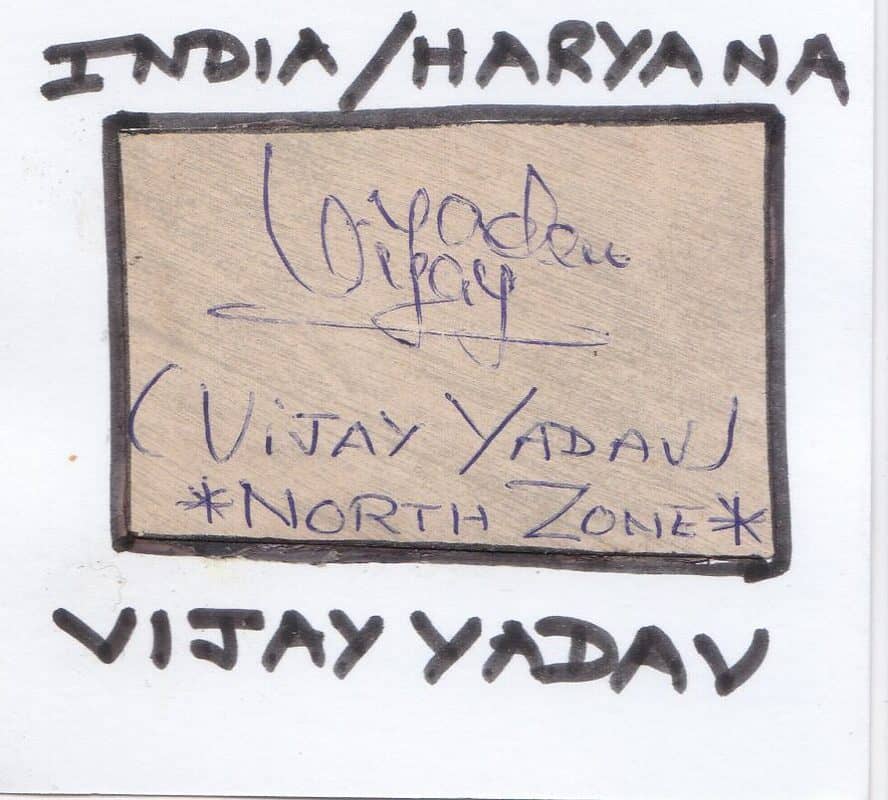 INDIA/HARYANA
Yadav
Vijay
(VIJAY YADAV)
*NORTH ZONE*
VIJAY YADAV